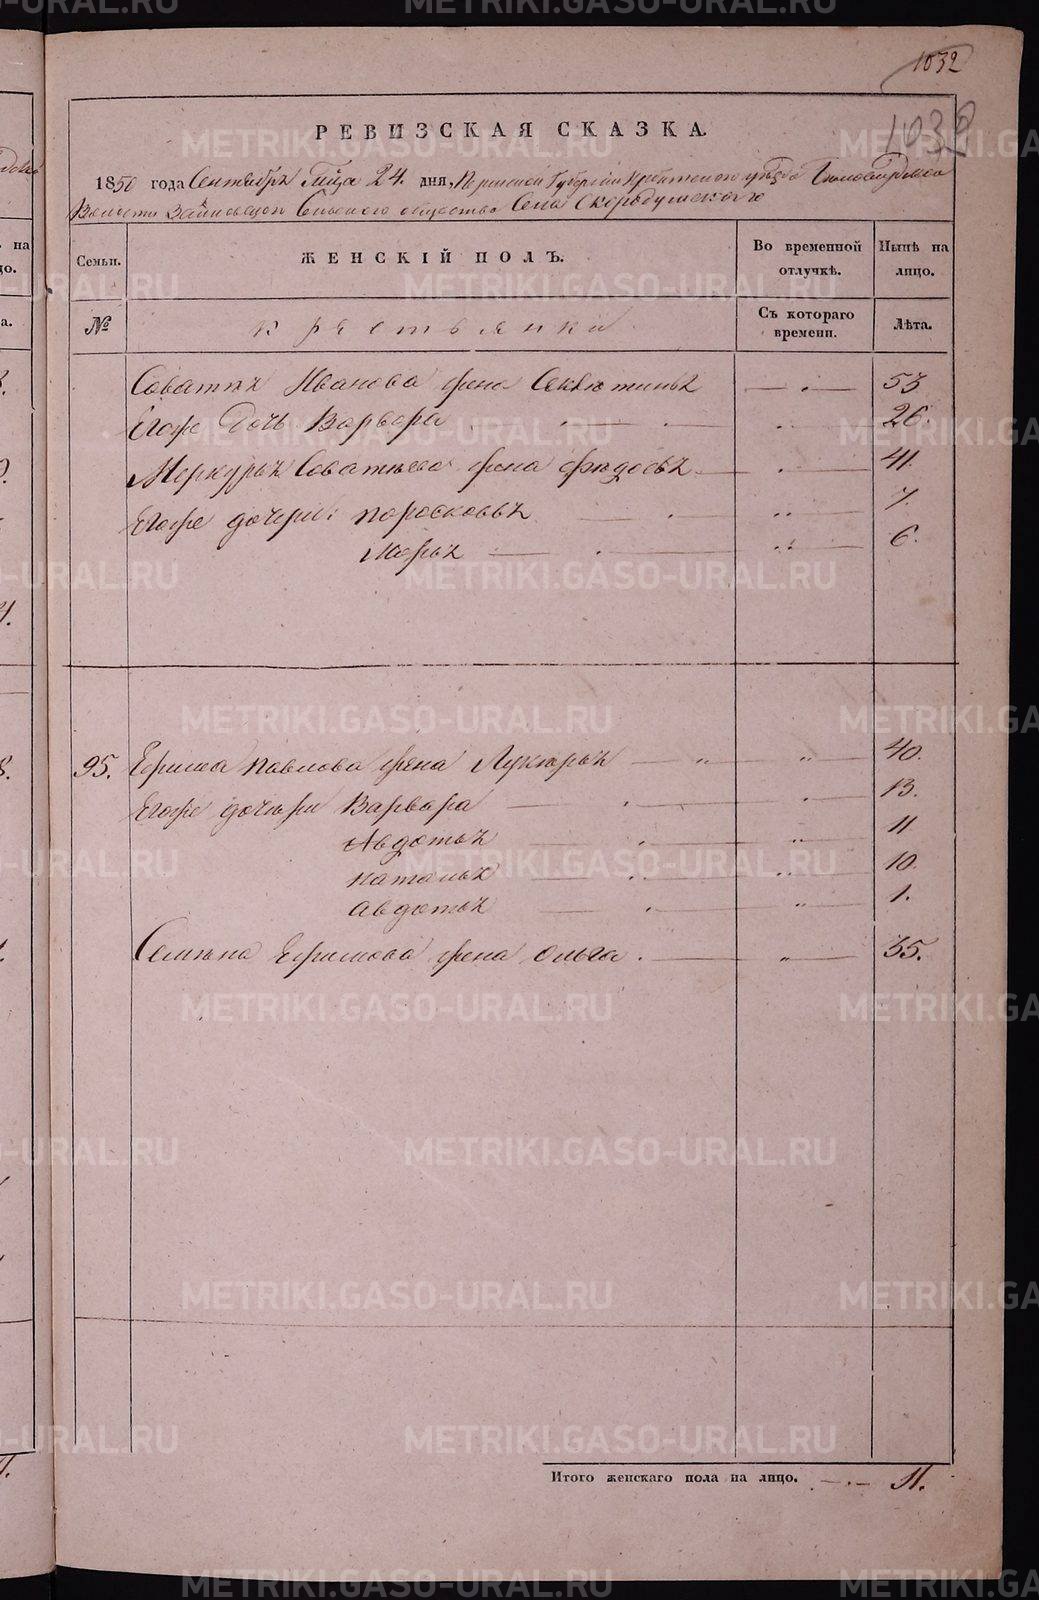 1032
1032
РЕВИЗСКАЯ СКАЗКА.
1850 года Сентября М-ца 24. дня, Пермской Губернии Ирбитского уезда
Волости Сельского общества Села Скородумского
Семьи. ЖЕНСКІЙ ПОЛЪ. Во временной отлучкѣ. Нынѣ на лицо.
№ Крестьянки Съ котораго времени. Лѣта.
Саватия Иванова жена 53
Егоже Дочь Варвара 26.
Меркурья Саватиева жена Федосья 41.
Егоже дочери: Поросковья 7.
Марья 6.
95. Ефима Павлова жена Лукерья 40.
Егоже дочери Варвара 13.
Авдотья 11
Наталья 10.
Авдотья 1.
Семена Ефимова жена Ольга. 35.
Итого женскаго пола на лицо. 11.
METRIKI.GASO-URAL.RU